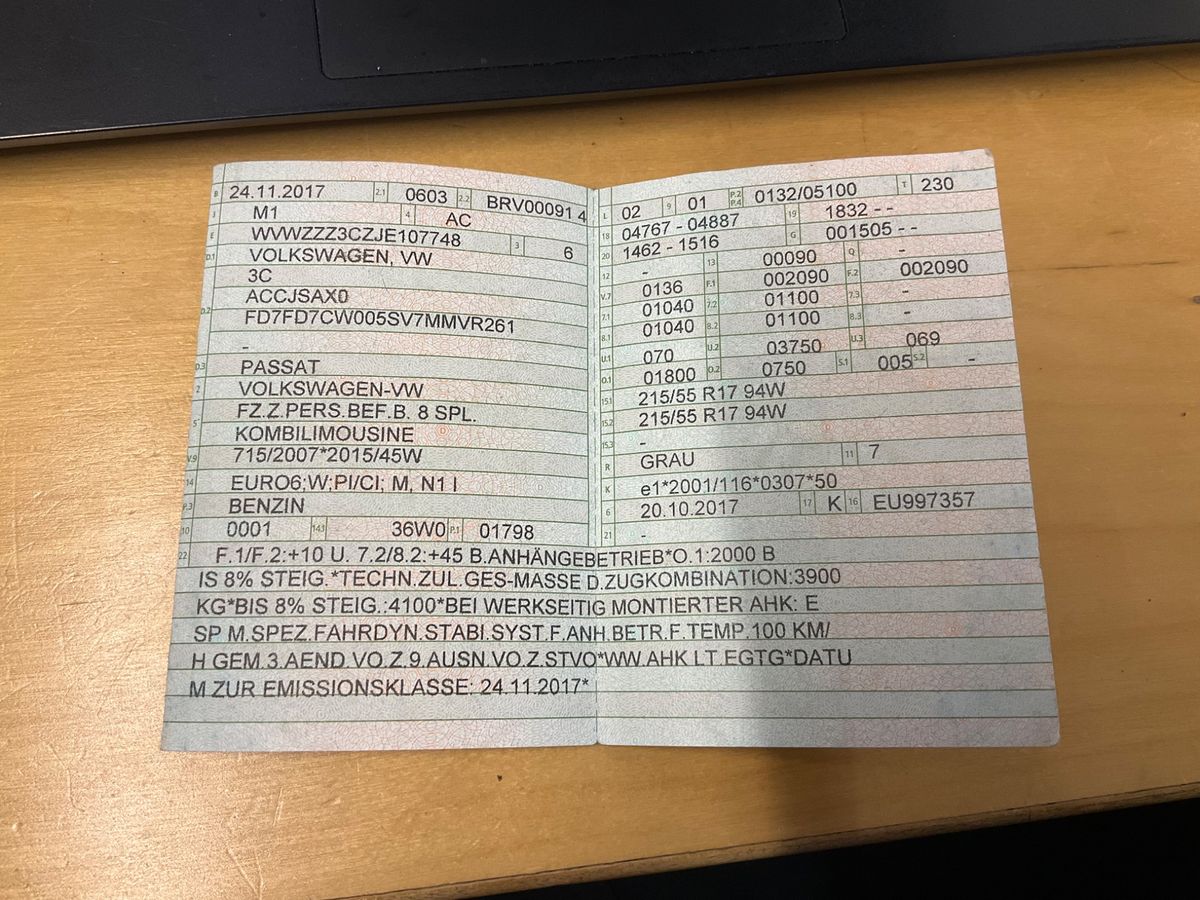 B 24.11.2017 2.1 0603 2.2 BRV00091 4
J M1 4 AC
E WVWZZZ3CZJE107748 3 6
D.1 VOLKSWAGEN, VW
3C
D.2 ACCJSAX0
FD7FD7CW005SV7MMVR261
-
D.3 PASSAT
2 VOLKSWAGEN-VW
5 FZ.Z.PERS.BEF.B. 8 SPL.
KOMBILIMOUSINE
V.9 715/2007*2015/45W
14 EURO6;W;PI/CI; M, N1 I
P.3 BENZIN
10 0001 14.1 36W0 P.1 01798
L 02 9 01 P.2 P.4 0132/05100 T 230
18 04767 - 04887 19 1832 - -
20 1462 - 1516 G 001505 - -
12 - 13 00090 Q -
V.7 0136 F.1 002090 F.2 002090
7.1 01040 7.2 01100 7.3 -
8.1 01040 8.2 01100 8.3 -
U.1 070 U.2 03750 U.3 069
O.1 01800 O.2 0750 S.1 005 S.2 -
15.1 215/55 R17 94W
15.2 215/55 R17 94W
15.3 -
R GRAU 11 7
K e1*2001/116*0307*50
6 20.10.2017 17 K 16 EU997357
21 -
22 F.1/F.2:+10 U. 7.2/8.2:+45 B.ANHÄNGEBETRIEB*O.1:2000 B
IS 8% STEIG.*TECHN.ZUL.GES-MASSE D.ZUGKOMBINATION:3900
KG*BIS 8% STEIG.:4100*BEI WERKSEITIG MONTIERTER AHK: E
SP M.SPEZ.FAHRDYN.STABI.SYST.F.ANH.BETR.F.TEMP.100 KM/
H GEM.3.AEND.VO.Z.9.AUSN.VO.Z.STVO*WW.AHK LT.EGTG*DATU
M ZUR EMISSIONSKLASSE: 24.11.2017*